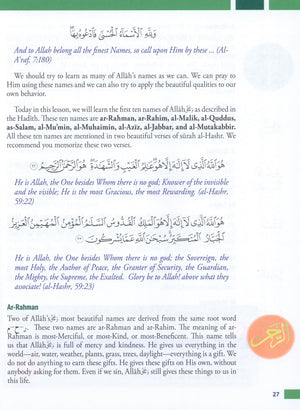 وَلِلَّهِ الْأَسْمَاءُ الْحُسْنَىٰ فَادْعُوهُ بِهَا
And to Allah belong all the finest Names, so call upon Him by these ... (Al-
A'raf, 7:180)
We should try to learn as many of Allāh's names as we can. We can pray to
Him using these names and we can also try to apply the beautiful qualities to our
own behavior.
Today in this lesson, we will learn the first ten names of Allāh as described in
the Hadith. These ten names are ar-Rahman, ar-Rahim, al-Malik, al-Quddus,
as-Salam, al-Mu'min, al-Muhaimin, al-Aziz, al-Jabbar, and al-Mutakabbir.
All these ten names are mentioned in two beautiful verses of sūrah al-Hashr. We
recommend you memorize these two verses.
هُوَ اللَّهُ الَّذِي لَا إِلَٰهَ إِلَّا هُوَ عَالِمُ الْغَيْبِ وَالشَّهَادَةِ هُوَ الرَّحْمَٰنُ الرَّحِيمُ
He is Allah, the One besides Whom there is no god; Knower of the invisible
and the visible; He is the most Gracious, the most Rewarding. (al-Hashr,
59:22)
هُوَ اللَّهُ الَّذِي لَا إِلَٰهَ إِلَّا هُوَ الْمَلِكُ الْقُدُّوسُ السَّلَامُ الْمُؤْمِنُ الْمُهَيْمِنُ الْعَزِيزُ
الْجَبَّارُ الْمُتَكَبِّرُ سُبْحَانَ اللَّهِ عَمَّا يُشْرِكُونَ
He is Allah, the One besides Whom there is no god; the Sovereign, the
most Holy, the Author of Peace, the Granter of Security, the Guardian,
the Mighty, the Supreme, the Exalted. Glory be to Allah! above what they
associate! (al-Hashr, 59:23)
Ar-Rahman
Two of Allāh's most beautiful names are derived from the same root word
ر-ح-م. These two names are ar-Rahman and ar-Rahim. The meaning of ar-
Rahman is most-Merciful, or most-Kind, or most-Beneficent. This name tells
us that Allāh is full of mercy and kindness. He gives us everything in the
world—air, water, weather, plants, grass, trees, daylight—everything is a gift. We
do not do anything to earn the gift. He gives these gifts on His own, without
anybody asking for them. Even if we sin, Allāh still gives these things to us in
this life.
27